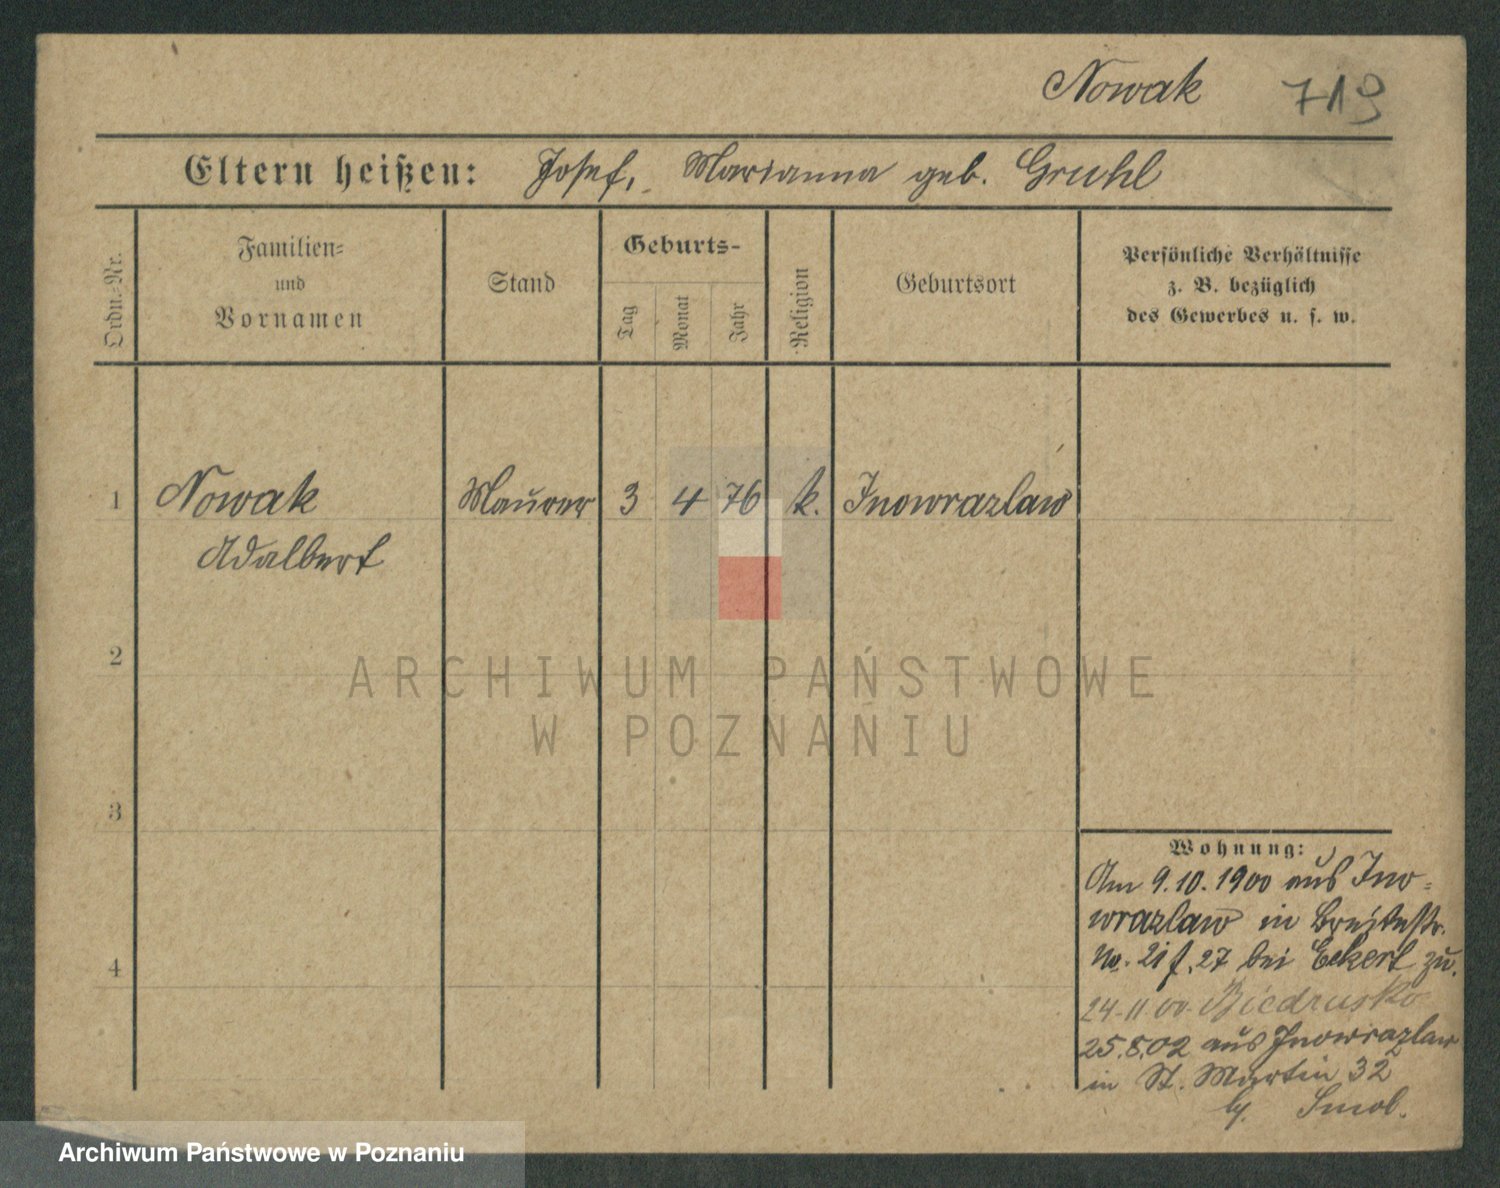 Nowak 719
Eltern heißen: Josef, Marianna geb. Gruhl
Ordn.-Nr.
Familien-
und
Vornamen
Stand
Geburts-
Tag
Monat
Jahr
Religion
Geburtsort
Persönliche Verhältnisse
z. B. bezüglich
des Gewerbes u. s. w.
1 Nowak Maurer 3 4 76 k. Inowrazlaw
Adalbert
2
ARCHIWUM PAŃSTWOWE
W POZNANIU
3
Wohnung:
Am 9.10.1900 aus Ino-
wrazlaw in Breitestr.
No. 27 bei Eckert zu.
4
24.11.00. Biedrusko
25.8.02 aus Inowrazlaw
in St. Martin 32
Archiwum Państwowe w Poznaniu